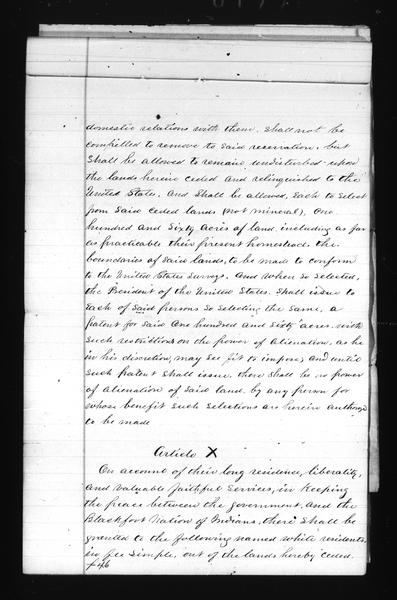 domestic relations with them, shall not be
compelled to remove to said reservation, but
shall be allowed to remain undisturbed upon
the lands herein ceded and relinquished to the
United State, and shall be allowed, each to select
from said ceded lands (not mineral), one
hundred and sixty acres of land, including as far
as practicable their present homestead, the
boundaries of said lands, to be made to conform
to the United States surveys. And when so selected,
the President of the United States, shall issue to
each of said persons so selecting the same, a
patent for said one hundred and sixty acres, with
such restrictions on the power of alienation, as he
in his discretion, may see fit to impose; and until
such patent shall issue, there shall be no power
of alienation of said land by any person for
whose benefit such selections are herein authorized
to be made
Article X
On account of their long residence, liberality,
and valuable faithful services, in keeping
the peace between the government, and the
Blackfoot Nation of Indians, there shall be
granted to the following named white residents,
in fee simple, out of the lands hereby ceded.